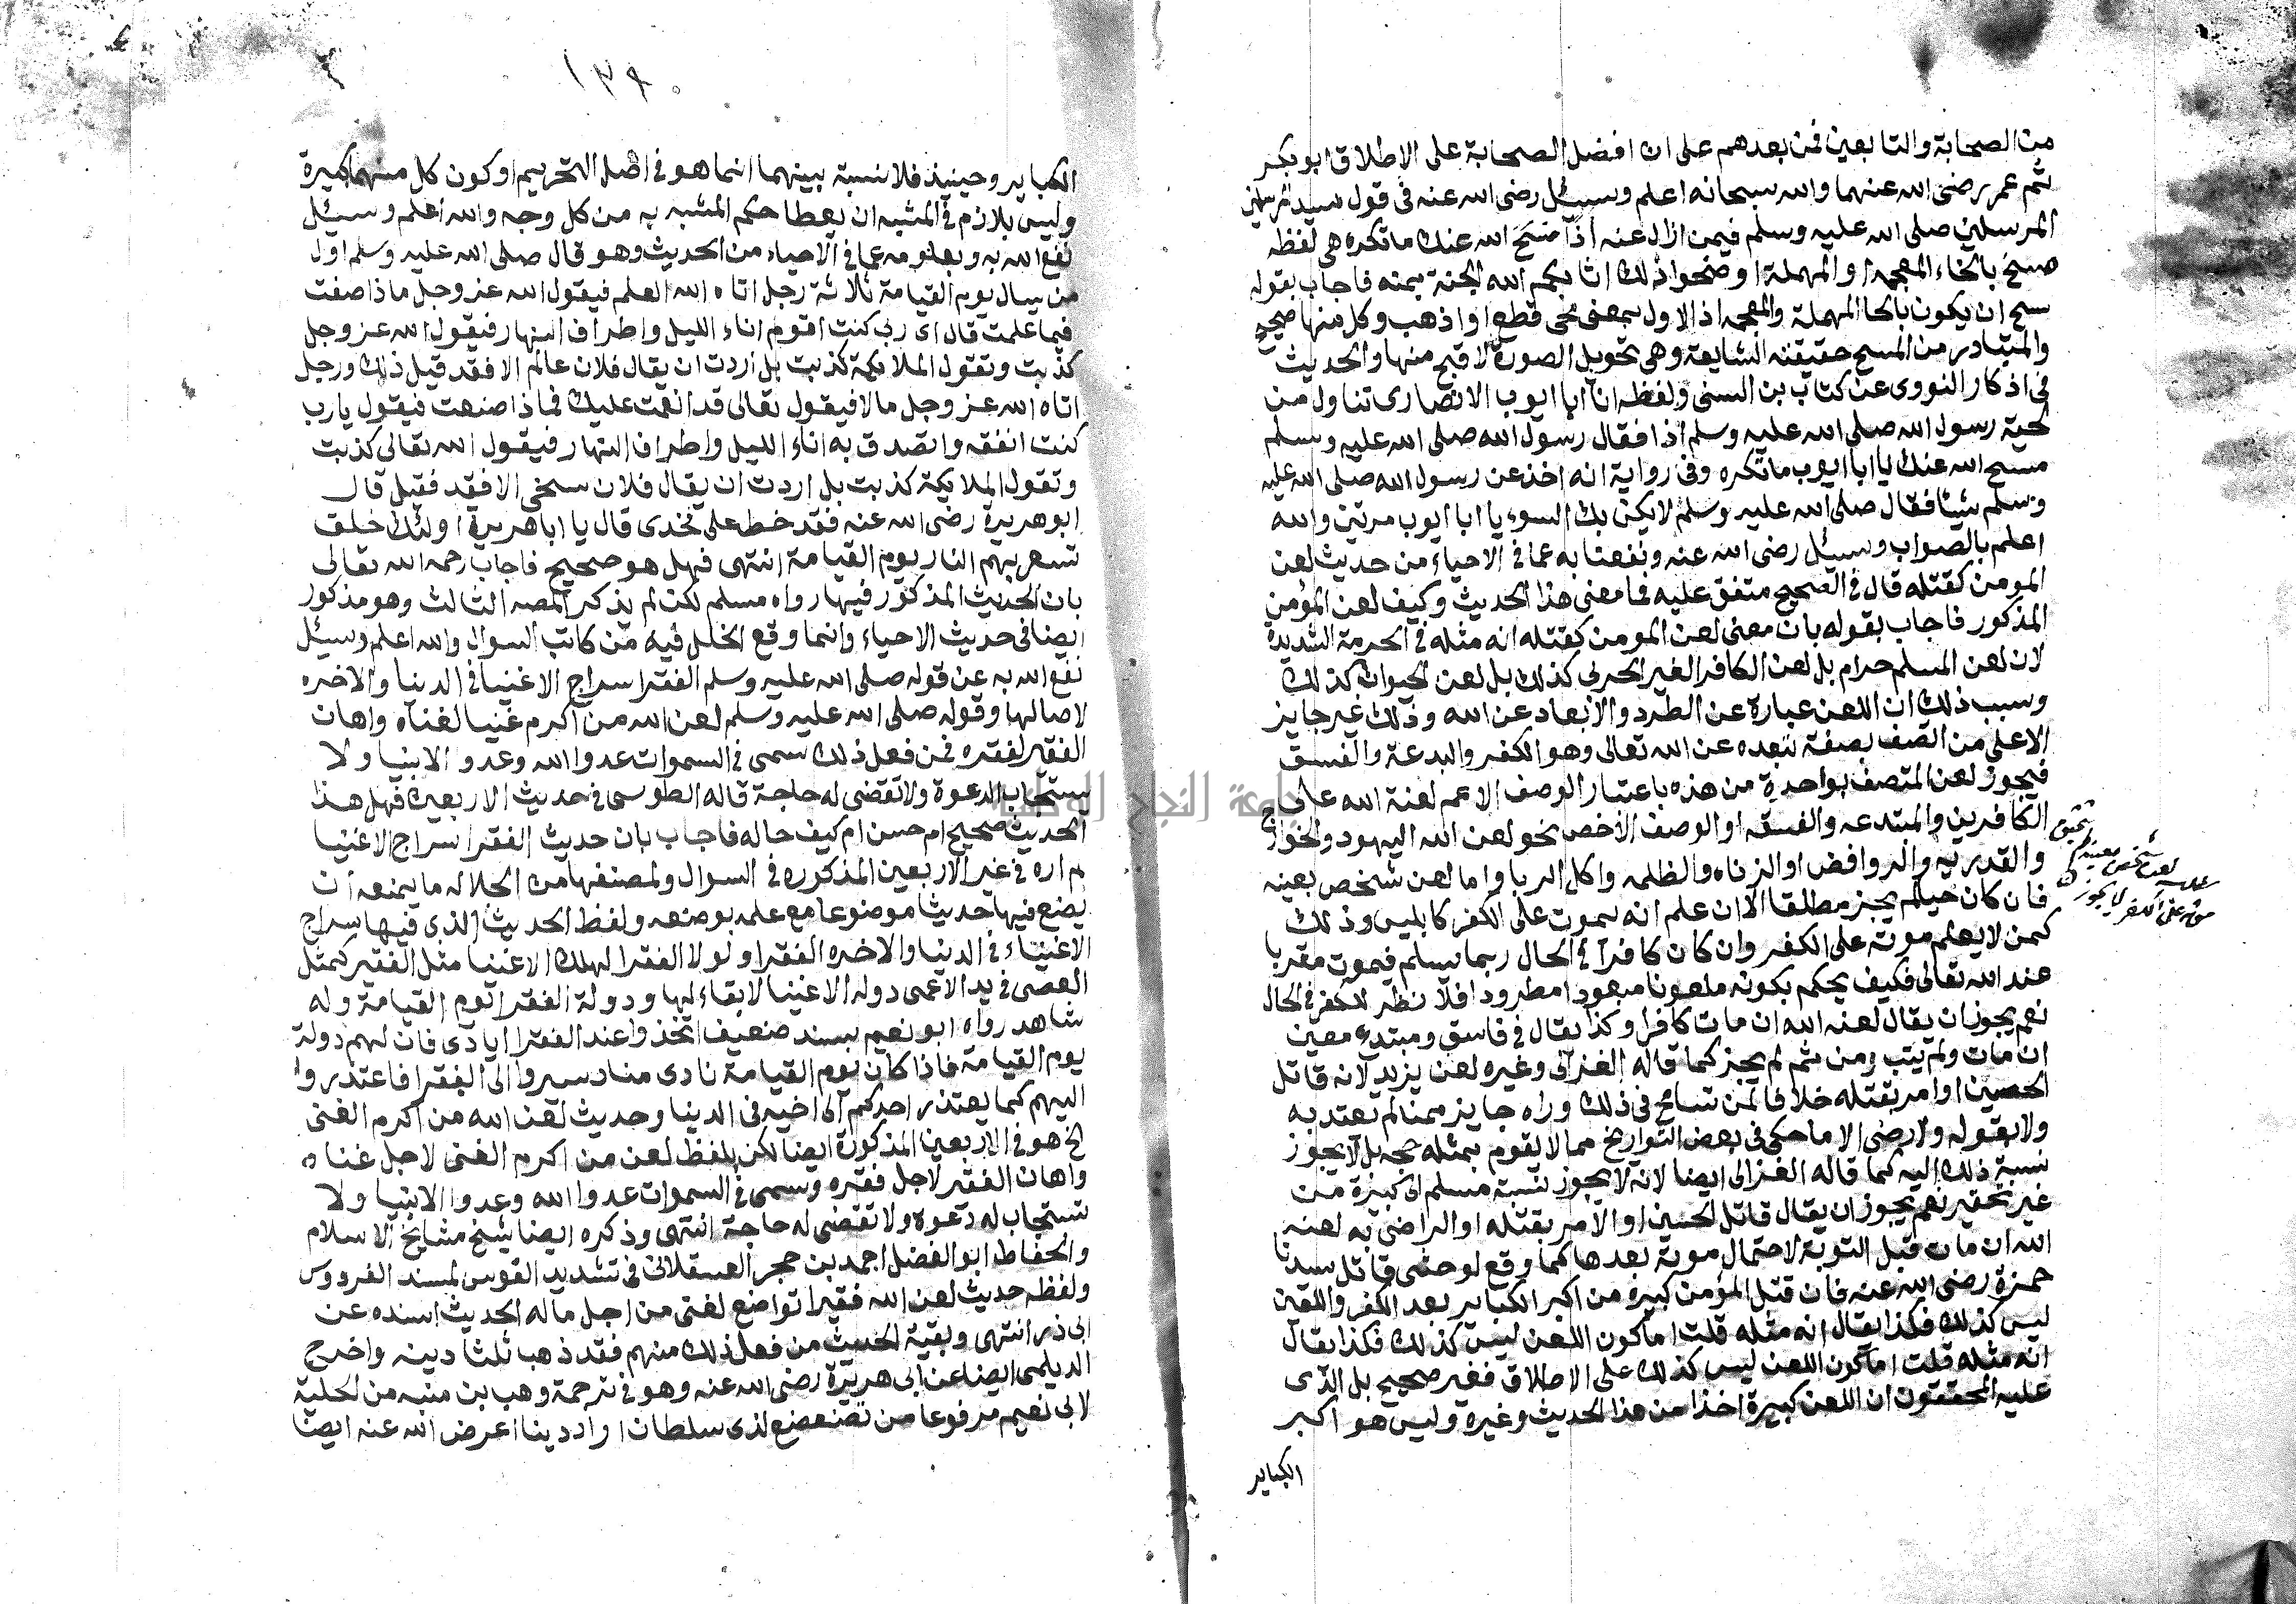 من الصحابة والتابعين فمن بعدهم على ان افضل الصحابة على الاطلاق ابو بكر
ثم عمر رضى الله عنهما والله سبحانه اعلم وسئل رضى الله عنه فى قول سيد
المرسلين صلى الله عليه وسلم فيمن ازال عنه اذا مسح الله عنك ما تكره هى لفظه
مسخ بالخاء المعجمه او المهملة او ضحوا ذلك اثابكم الله الجنة بمنه فاجاب بقوله
يصح ان يكون بالحا المهملة والمعجمه اذ الاول بمعنى محى قطع او اذهب وكل منها صحيح
والمتبادر من المسخ حقيقته الشايعة وهى تحويل الصورة لاقبح منها والحديث
فى اذكار النووى عن كتاب بن السنى ولفظه ان ابا ايوب الانصارى تناول من
لحية رسول الله صلى الله عليه وسلم اذا فقال رسول الله صلى الله عليه وسلم
مسح الله عنك يا ابا ايوب ما تكره وفى رواية انه اخذ عن رسول الله صلى الله عليه
وسلم شيئا فقال صلى الله عليه وسلم لا يكن بك السوء يا ابا ايوب مرتين والله
اعلم بالصواب وسئل رضى الله عنه ونفعنا به عما فى الاحياء من حديث لعن
المومن كقتله قال فى الصحيح متفق عليه فما معنى هذا الحديث وكيف لعن المؤمن
المذكور فاجاب بقوله بان معنى لعن المومن كقتله انه مثله فى الحرمة الشديدة
لان لعن المسلم حرام بل لعن الكافر الغير الحربى كذلك بل لعن الحيوان كذلك
وسبب ذلك ان اللعن عبارة عن الطرد والابعاد عن الله وذلك غير جايز
الا على من اتصف بصفة تبعده عن الله تعالى وهو الكفر والبدعة والفسق
فيجوز لعن المتصف بواحدة من هذه باعتبار الوصف الاعم لعنة الله على
الكافرين والمبتدعه والفسقه او الوصف الاخص نحو لعن الله اليهود والخوارج
والقدريه والروافض او الزناه والظلمه واكل الربا واما لعن شخص بعينه
فان كان حيا لم يجز مطلقا الا ان علم انه يموت على الكفر كابليس وذلك
كمن لا يعلم موته على الكفر وان كان كافرا فى الحال ربما يسلم فيموت مقربا
عند الله تعالى فكيف يحكم بكونه ملعونا مبعودا مطرودا فلا نظر للكفر فى الحال
نعم يجوز ان يقال لعنه الله ان مات كافرا وكذا يقال فى فاسق ومبتدع معين
ان مات ولم يتب ومن ثم لم يجز كما قاله الغزالى وغيره لعن يزيد لانه قاتل
الحسين او امر بقتله خلافا لمن تسامح فى ذلك وراه جايز ممنا لم يعتد به
ولا بقوله ولا رضى الا ما حكى فى بعض التواريخ مما لا يقوم بمثله حجه بل لا يجوز
نسبة ذلك اليه كما قاله الغزالى ايضا لانه لا يجوز نسبة مسلم الى كبيرة من
غير تحقير نعم يجوز ان يقال قاتل الحسين او الآمر بقتله او الراضى به لعنه
الله ان مات قبل التوبة لاحتمال موته بعدها كما وقع لوحشى قاتل سيدنا
حمزة رضى الله عنه فان قتل المؤمن كبيرة من اكبر الكباير بعد الكفر واللعن
ليس كذلك فكذا يقال انه مثله قلت اما كون اللعن ليس كذلك فكذا يقال
انه مثله قلت اما كون اللعن ليس كذلك على الاطلاق فغير صحيح بل الذى
عليه المحققون ان اللعن كبيرة اخذا من هذا الحديث وغيره وليس هو اكبر
الكباير
لعن شخص معين
موته على الكفر لا يجوز
١٣٨
الكباير وحينيذ فلا نسبة بينهما انما هو فى اصل التحريم او كون كل منهما كبيرة
وليس بلازم فى المشبه ان يعطا حكم المشبه به من كل وجه والله اعلم وسئل
نفع الله به وبعلومه عما فى الاحياء من الحديث وهو قال صلى الله عليه وسلم اول
من يسال يوم القيامة ثلاثة رجل اتاه الله العلم فيقول الله عز وجل ماذا صنعت
فيما علمت قال اى ربى كنت اقوم اناء الليل واطراف النهار فيقول الله عز وجل
كذبت وتقول الملايكة كذبت بل اردت ان يقال فلان عالم الا فقد قيل ذلك ورجل
اتاه الله عز وجل مالا فيقول تعالى قد انعمت عليك فماذا صنعت فيقول يارب
كنت انفقه واتصدق به اناء الليل واطراف النهار فيقول الله تعالى كذبت
وتقول الملايكة كذبت بل اردت ان يقال فلان سخى الا فقد فقيل قال
ابو هريرة رضى الله عنه فقد خط على فخدى قال يا ابا هريرة اولئك خلق
تسعر بهم النار يوم القيامة انتهى فهل هو صحيح فاجاب رحمه الله تعالى
بان الحديث المذكور فيها رواه مسلم لكن لم يذكر المصه الثالث وهو مذكور
ايضا فى حديث الاحياء وانما وقع الخلل فيه من كاتب السوال والله اعلم وسئل
نفع الله به عن قوله صلى الله عليه وسلم الفقرا سراج الاغنيا فى الدنيا والاخره
لا صالها وقوله صلى الله عليه وسلم لعن الله من اكرم غنيا لغناه واهان
الفقير لفقره فمن فعل ذلك سمى فى السموات عدو الله وعدو الانبيا ولا
يستجاب الدعوة ولا تقضى له حاجة قاله الطوسى فى حديث الاربعين فهل هذا
الحديث صحيح ام حسن ام كيف حاله فاجاب بان حديث الفقرا سراج الاغنيا
لم اره فى غير الاربعين المذكوره فى السوال ولمصنفها من الجلاله ما يمنعه ان
يضع فيها حديثا موضوعا مع علمه بوضعه ولفظ الحديث الذى فيها سراج
الاغنياء فى الدنيا والاخره الفقرا ولولا الفقرا لهلك الاغنيا مثل الفقير كمثل
العصى فى يد الاعمى دولة الاغنيا لا بقاء لها ودولة الفقرا يوم القيامة وله
شاهد رواه ابو نعيم بسند ضعيف اتخذوا عند الفقرا ايادى فان لهم دولة
يوم القيامة فاذا كان يوم القيامة نادى مناد سيروا الى الفقرا فاعتذروا
اليهم كما يعتذر احدكم الى اخيه فى الدنيا وحديث لعن الله من اكرم الغنى
الخ هو فى الاربعين المذكورة ايضا لكن بلفظ لعن من اكرم الغنى لاجل غناه
واهان الفقير لاجل فقره وسمى فى السموات عدو الله وعدو الانبيا ولا
تستجاب له دعوة ولا تقتضى له حاجة انتهى وذكره ايضا شيخ مشايخ الاسلام
والحفاظ ابو الفضل احمد بن حجر العسقلانى فى تشديد القوس لمسند الفردوس
ولفظه حديث لعن الله فقيرا تواضع لغنى من اجل ماله الحديث اسنده عن
ابى ذر انتهى وبقية الحديث من فعل ذلك منهم فقد ذهب ثلثا دينه واخرج
الديلمى ايضا عن ابى هريرة رضى الله عنه وهو فى ترجمة وهب بن منبه من الحلية
لابى نعيم مرفوعا من تضعضع لذى سلطان اراد دينا اعرض الله عنه ايضا
جامعة النجاح الوطنية